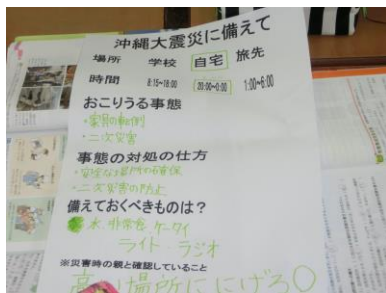 沖縄大震災に備えて
場所 学校 自宅 旅先
時間 8:15~18:00 20:00~0:00 1:00~6:00
おこりうる事態
・家具の転倒
・二次災害
事態の対処の仕方
・安全な場所の確保
・二次災害の防止
備えておくべきものは?
水 非常食 ケータイ
ライト ラジオ
※災害時の親と確認していること
高い場所ににげろ〇